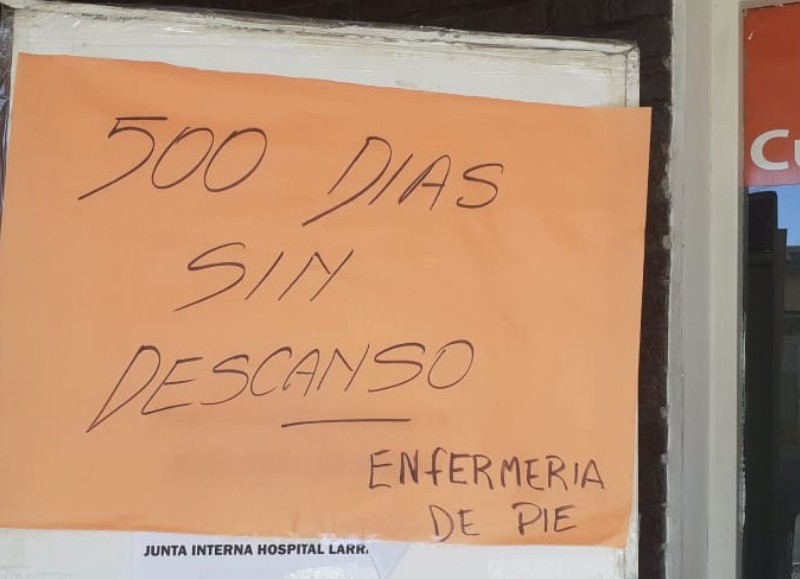 500 DIAS
SIN
DESCANSO
ENFERMERIA
DE PIE
JUNTA INTERNA HOSPITAL